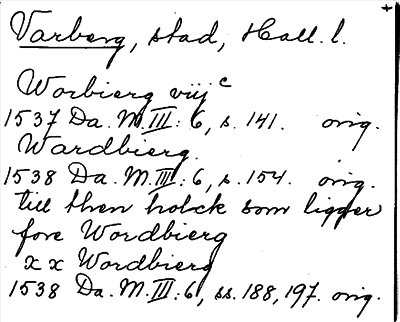 Varberg, stad, Hall. l.
Worbierg viij c
1537 Da. M. III: 6, s. 141. orig.
Wardbierg.
1538 Da. M. III: 6, s. 154. orig.
till then holck som ligger
fore Wordbierg
x x Wordbierg
1538 Da. M. III: 6, ss. 188, 197. orig.